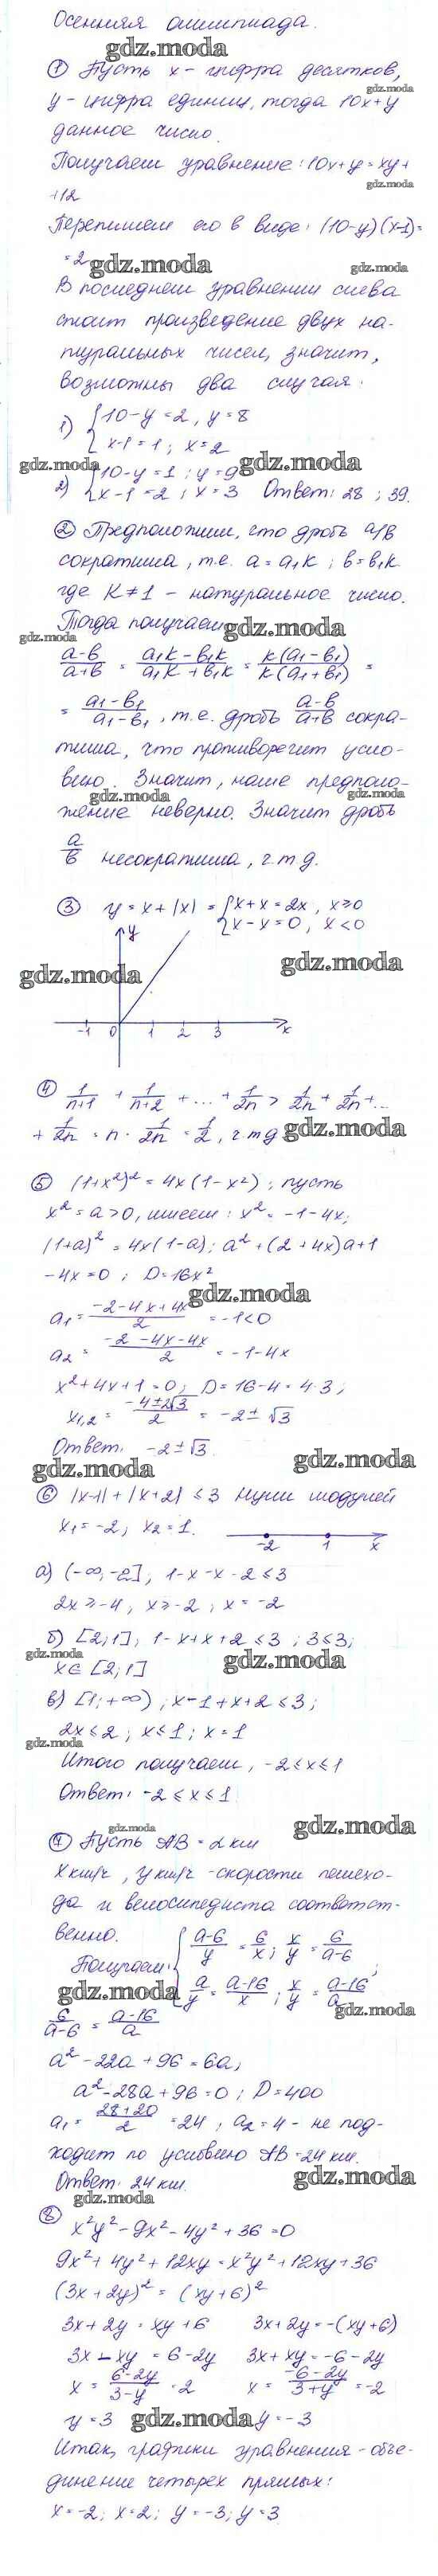 Осенняя олимпиада.
gdz.moda
① Пусть x - цифра десятков,
gdz.moda
y - цифра единиц, тогда 10x+y
данное число.
Получаем уравнение: 10x+y=xy+
gdz.moda
+12
Перепишем его в виде: (10-y)(x-1)=
=2
gdz.moda gdz.moda
В последнем уравнении слева
стоит произведение двух на-
туральных чисел, значит,
возможны два случая:
1) {10-y=2, y=8
x-1=1; x=2
gdz.moda gdz.moda
2) {10-y=1; y=9
x-1=2; x=3 Ответ: 28; 39.
② Предположим, что дробь a/в
сократима, т.е. a=a₁k; в=в₁k
где k≠1 - натуральное число.
Тогда получаем
gdz.moda
a-в/a+в = a₁k-в₁k/a₁k+в₁k = k(a₁-в₁)/k(a₁+в₁) =
= a₁-в₁/a₁-в₁, т.е. дробь a-в/a+в сокра-
тима, что противоречит усло-
вию. Значит, наше предполо-
gdz.moda gdz.moda
жение неверно. Значит дробь
a/в несократима, ч.т.д.
③ y=x+|x| = {x+x=2x, x≥0
x-x=0, x<0
y
gdz.moda gdz.moda
-1 0 1 2 3 x
④ 1/n+1 + 1/n+2 + ... + 1/2n > 1/2n + 1/2n + ...
+ 1/2n = n · 1/2n = 1/2, ч.т.д
gdz.moda
⑤ (1+x²)² = 4x(1-x²); пусть
x²=a>0, имеем: x²=-1-4x;
(1+a)²=4x(1-a); a²+(2+4x)a+1
-4x=0; D=16x²
gdz.moda
a₁ = -2-4x+4x/2 = -1<0
a₂ = -2-4x-4x/2 = -1-4x
x²+4x+1=0; D=16-4=4·3;
x₁,₂ = -4±2√3/2 = -2±√3
Ответ: -2±√3
gdz.moda gdz.moda
⑥ |x-1|+|x+2| ≤ 3 Нули модулей
x₁=-2; x₂=1.
-2 1 x
а) (-∞,-2], 1-x-x-2≤3
2x≥-4, x≥-2; x=-2
б) [2;1], 1-x+x+2≤3; 3≤3;
gdz.moda gdz.moda
x∈[2;1]
в) [1;+∞), x-1+x+2≤3;
2x≤2; x≤1; x=1
gdz.moda
Итого получаем, -2≤x≤1
Ответ: -2≤x≤1
gdz.moda gdz.moda
⑦ Пусть AB = 2 км
x км/ч, y км/ч - скорости пешехо-
да и велосипедиста соответст-
венно.
Получаем: {a-6/y = 6/x; x/y = 6/a-6
a/y = a-16/x; x/y = a-16/a;
gdz.moda gdz.moda
6/a-6 = a-16/a
a²-22a+96=6a;
a²-28a+96=0; D=400
a₁ = 28+20/2 = 24; a₂=4 - не под-
ходит по условию AB=24 км.
gdz.moda
Ответ: 24 км.
gdz.moda
⑧ x²y²-9x²-4y²+36=0
9x²+4y²+12xy=x²y²+12xy+36
(3x+2y)²=(xy+6)²
3x+2y=xy+6 3x+2y=-(xy+6)
3x-xy=6-2y 3x+xy=-6-2y
x = 6-2y/3-y = 2 x = -6-2y/3+y = -2
y=3 gdz.moda y=-3
Итак, графики уравнения - объе-
динение четырех прямых:
x=-2; x=2; y=-3; y=3